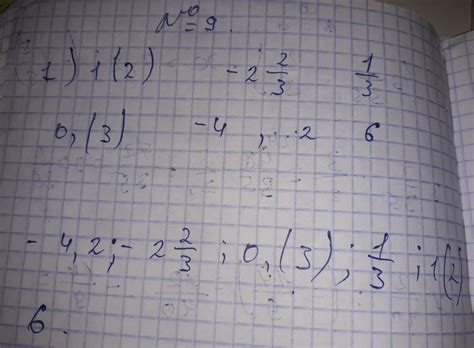 № 9.
1) 1(2) -2 2/3 1/3
0,(3) -4, 2 6
-4,2; -2 2/3; 0,(3); 1/3; 1(2)
6.